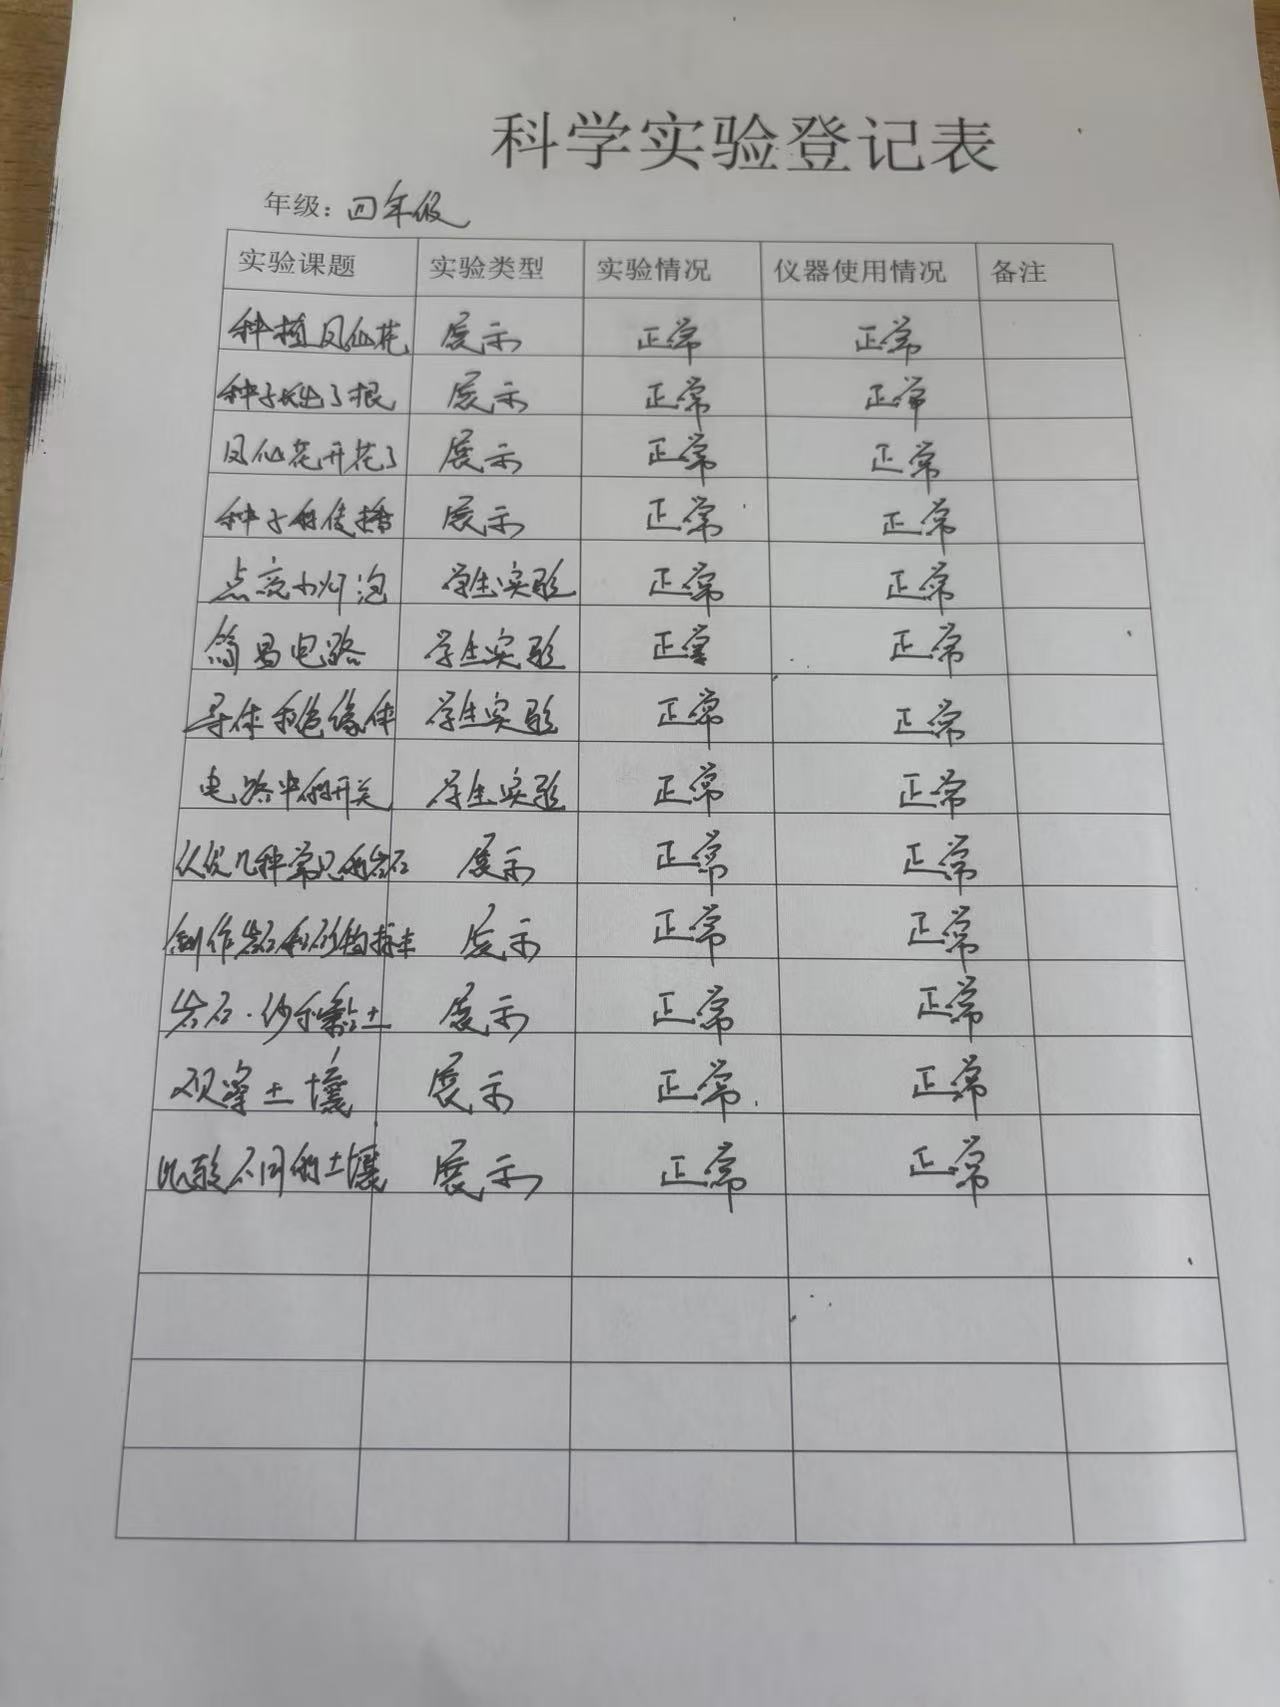 科学实验登记表
年级：四年级
实验课题 实验类型 实验情况 仪器使用情况 备注
种植凤仙花 展示 正常 正常
种子长出了根 展示 正常 正常
凤仙花开花了 展示 正常 正常
种子的传播 展示 正常 正常
点亮小灯泡 学生实验 正常 正常
简易电路 学生实验 正常 正常
导体和绝缘体 学生实验 正常 正常
电路中的开关 学生实验 正常 正常
认识几种常见的岩石 展示 正常 正常
制作岩石和矿物标本 展示 正常 正常
岩石、沙和黏土 展示 正常 正常
观察土壤 展示 正常 正常
比较不同的土壤 展示 正常 正常